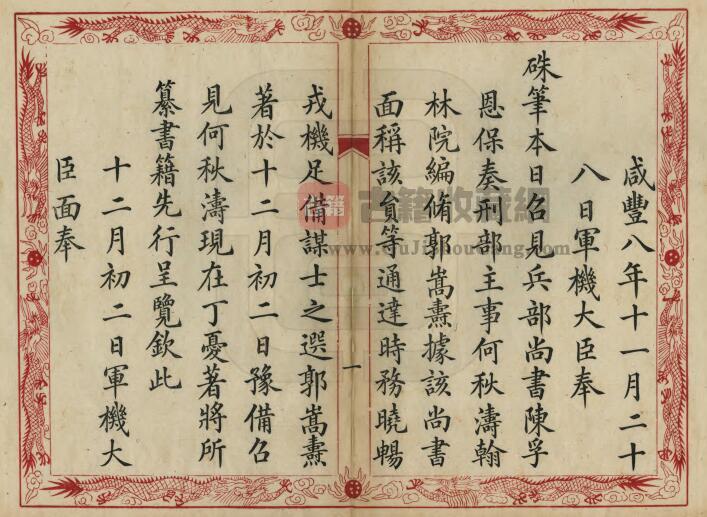 咸豐八年十一月二十
八日軍機大臣奉
硃筆本日召見兵部尚書陳孚
恩保奏刑部主事何秋濤翰
林院編脩郭嵩燾據該尚書
面稱該員等通達時務曉暢
一
戎機足備謀士之選郭嵩燾
著於十二月初二日豫備召
見何秋濤現在丁憂著將所
纂書籍先行呈覽欽此
十二月初二日軍機大
臣面奉
古籍收藏網
www.GuJiShouCang.com